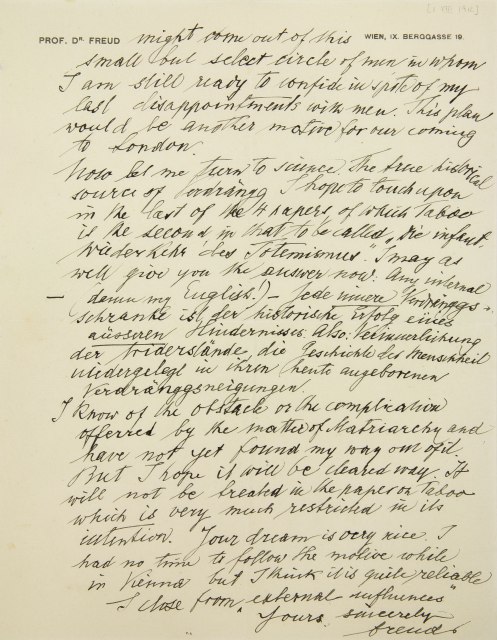 [1 VIII 1912]
PROF. DR. FREUD
WIEN, IX. BERGGASSE 19.
might come out of this
small but select circle of men in whom
I am still ready to confide in spite of my
last disappointments with men. This plan
would be another motive for our coming
to London.
Now let me turn to science. The true historical
source of Verdrängg I hope to touch upon
in the last of the 4 papers, of which Taboo
is the second, in that to be called „Die infant.
Wiederkehr des Totemismus". I may as
well give you the answer now. Any internal
(damn my English!) – Jede innere Verdränggs-
schranke ist der historische Erfolg eines
äusseren Hindernisses. Also: Verinnerlichung
der Widerstände, die Geschichte der Menschheit
niedergelegt in ihren heute angeborenen
Verdränggsneigungen.
I know of the obstacle or the complication
offerred by the matter of Matriarchy and
have not yet found my way out of it.
But I hope it will be cleared way. It
will not be treated in the paper on Taboo
which is very much restricted in its
intention. Your dream is very nice. I
had no time to follow the motive while
in Vienna but I think it is quite reliable
I close from "external influences"
Yours sincerely
Freud